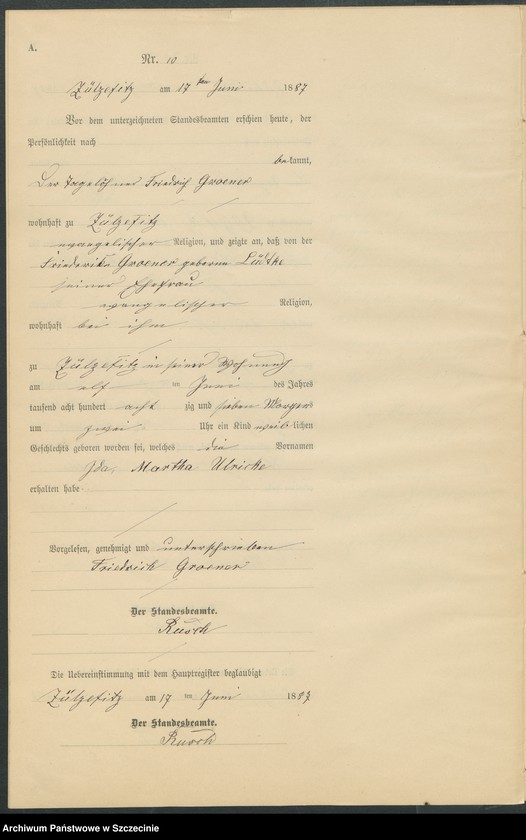 A.
Nr. 10
Zülzefitz am 17 ten Juni 1887
Vor dem unterzeichneten Standesbeamten erschien heute, der
Persönlichkeit nach
bekannt,
Der Tagelöhner Friedrich Groener
wohnhaft zu Zülzefitz
evangelischer Religion, und zeigte an, daß von der
Friederike Groener geborne Lüdtke
seiner Ehefrau
evangelischer Religion,
wohnhaft bei ihm
zu Zülzefitz in seiner Wohnung
am elf ten Juni des Jahres
tausend acht hundert acht zig und sieben Morgens
um zwei Uhr ein Kind weiblichen
Geschlechts geboren worden sei, welches die Vornamen
Ida, Martha Ulricke
erhalten habe
Vorgelesen, genehmigt und unterschrieben
Friedrich Groener
Der Standesbeamte.
Rusch
Die Uebereinstimmung mit dem Hauptregister beglaubigt
Zülzefitz am 17 ten Juni 1887
Der Standesbeamte.
Rusch
Archiwum Państwowe w Szczecinie